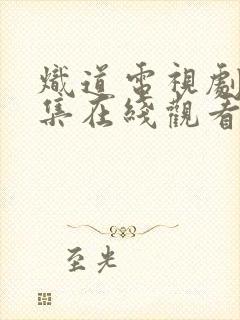 熾道電視劇
集在綫觀看
至光